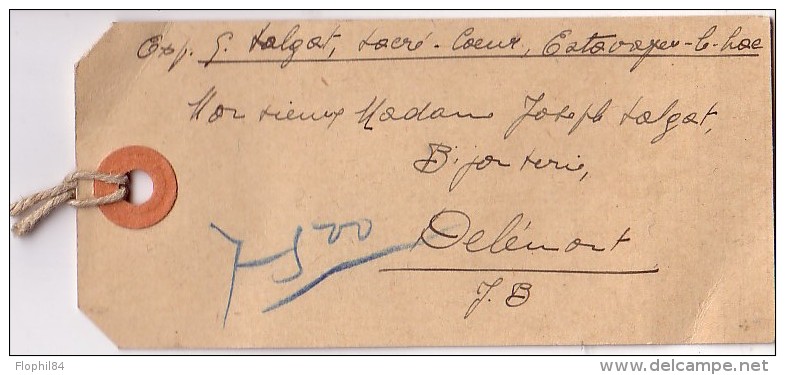 Exp. G. Salgat, Sacré-Coeur, Estavayer-le-Lac
Monsieur Madame Joseph Salgat,
Bijouterie,
Delémont
J. B
7500
Flophil84
©delcampe.net